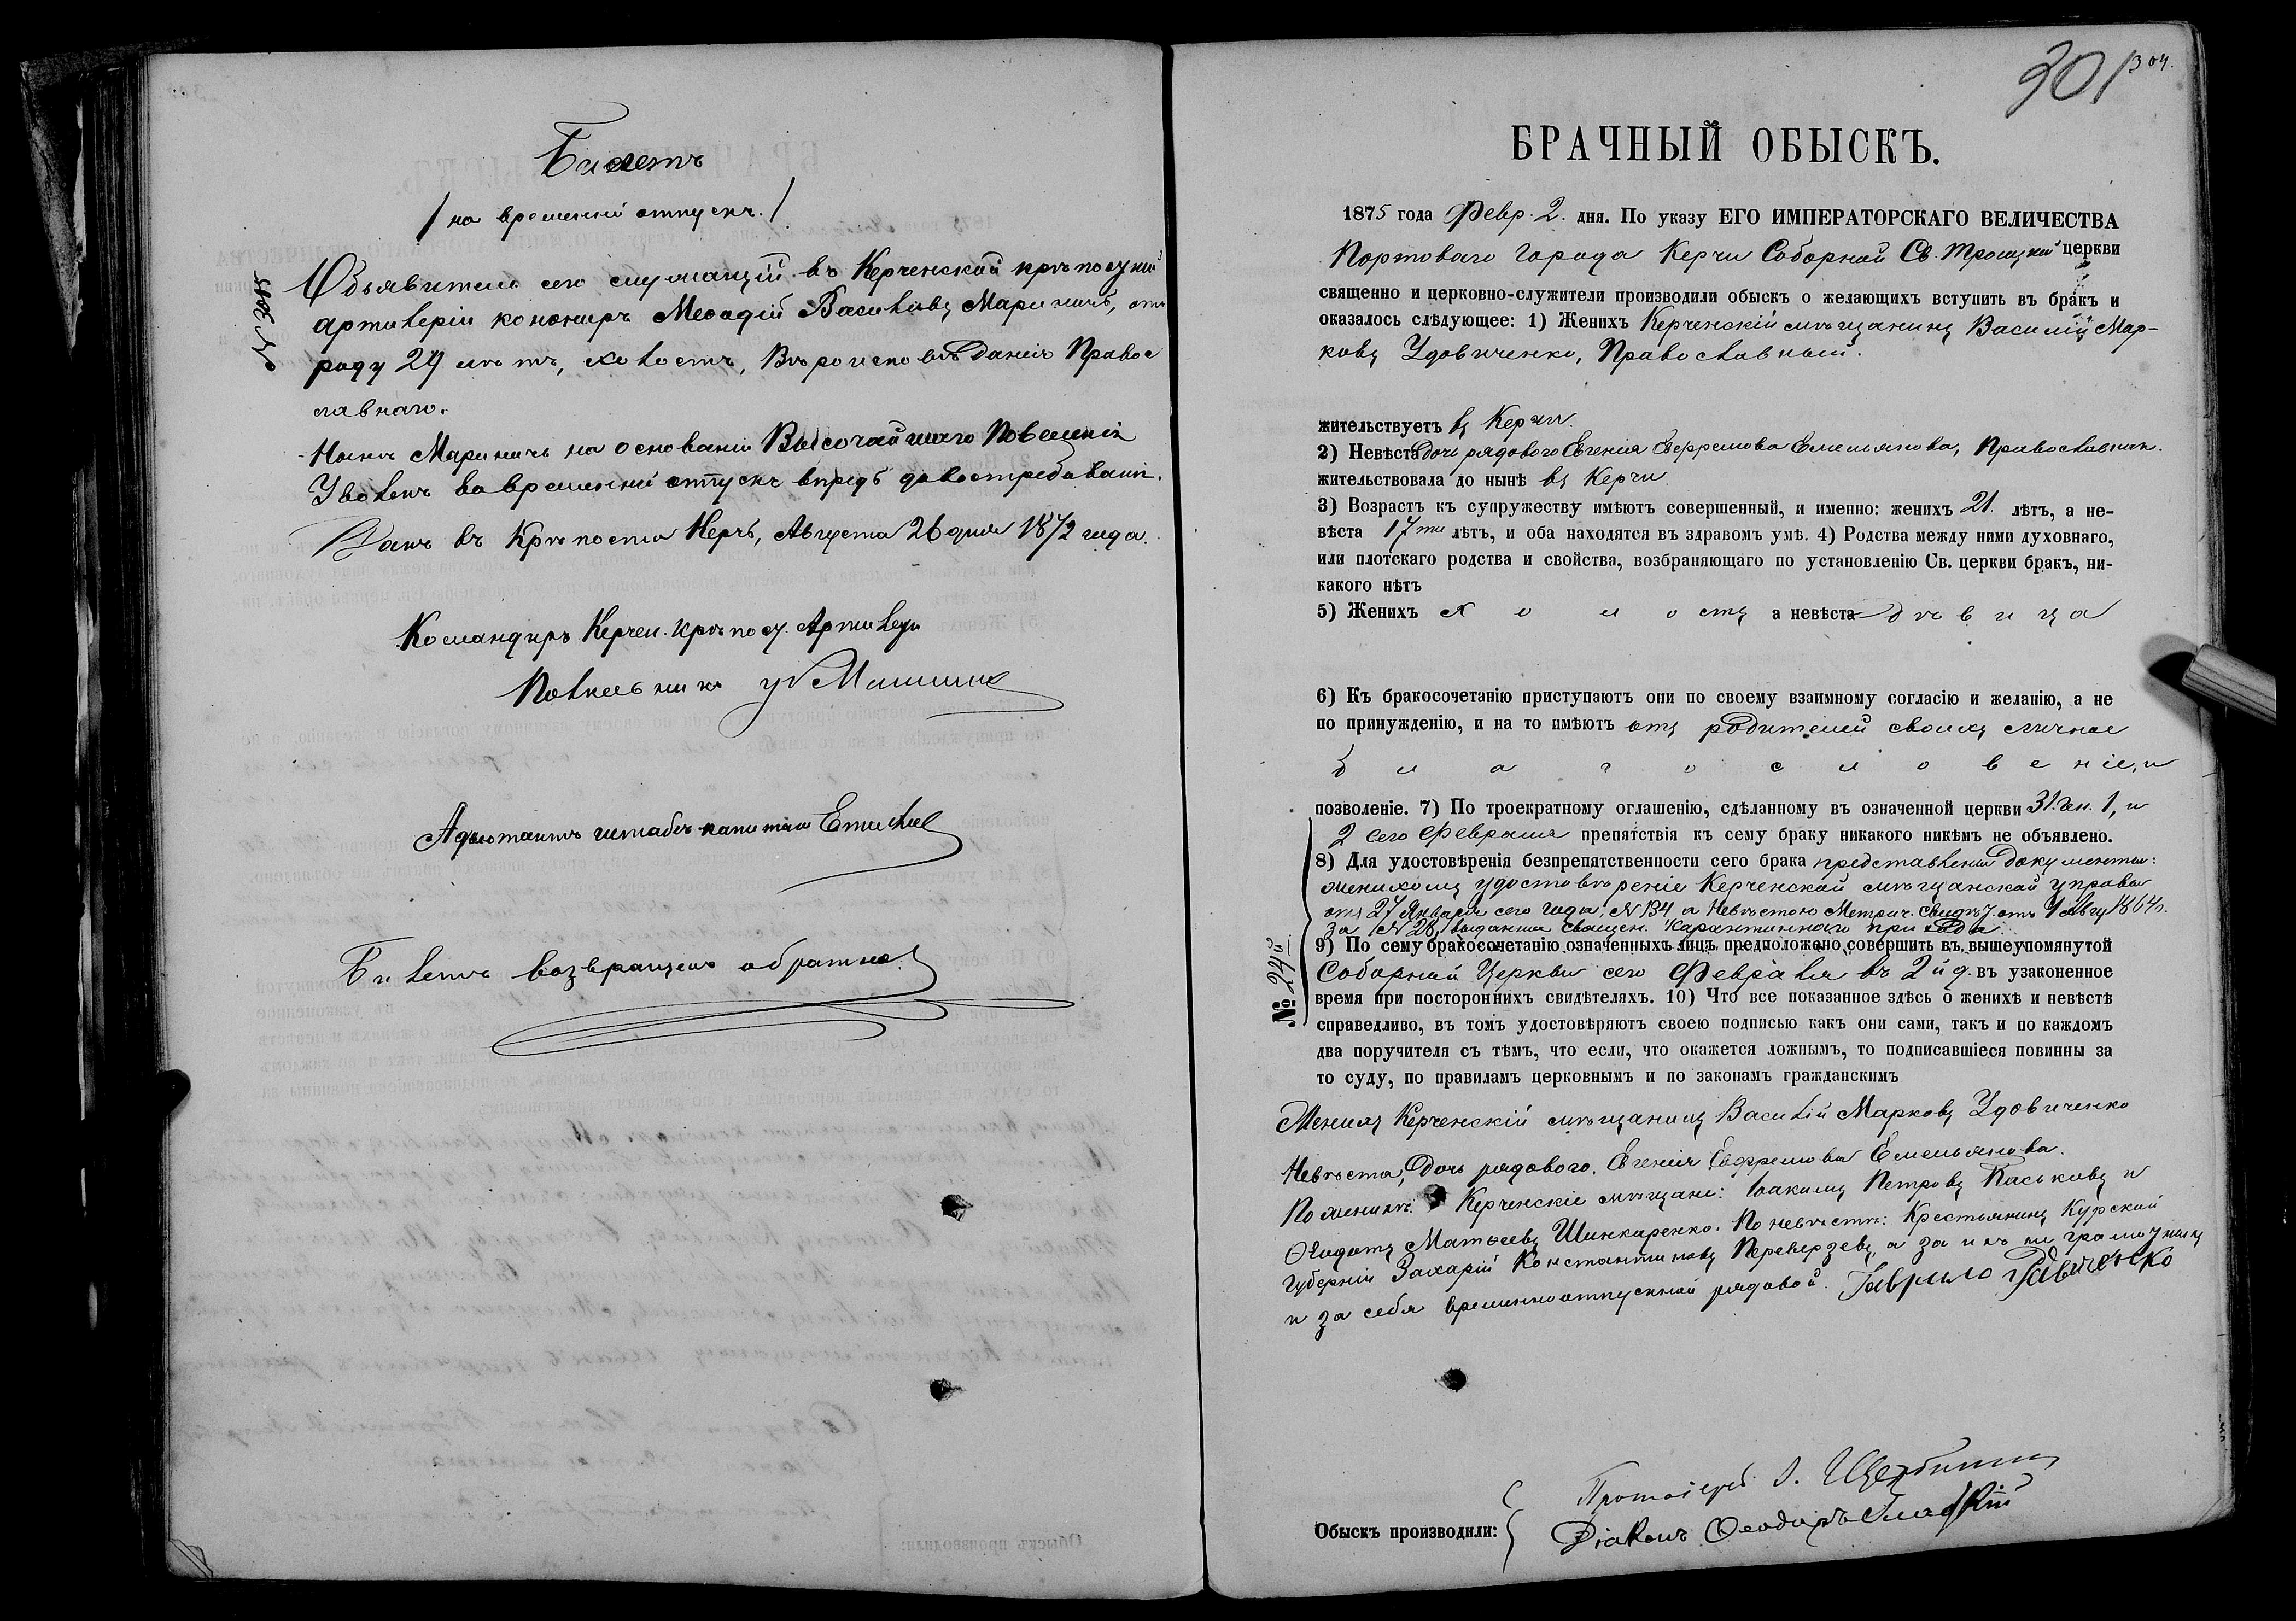 Билетъ
/ на временный отпускъ. /
Объявитель сего служащій въ Керченской крѣпостной
артилеріи канониръ Меѳодій Васильевъ Мариничъ, отъ
роду 29 лѣтъ, холостъ, Вѣроисповѣданія Правос
лавнаго.
Нынѣ Мариничъ на основаніи Высочайшаго Повеленія
Уволенъ во временный отпускъ впредь до востребованія.
Данъ въ Крѣпости Керчь, Августа 26 дня 1872 года.
Командиръ Керчен. крѣпост. Артилеріи
Полковникъ
Адьютантъ штабсъ-капитанъ
Билетъ возвращенъ обратно.
301 304.
БРАЧНЫЙ ОБЫСКЪ.
1875 года Февр. 2. дня. По указу ЕГО ИМПЕРАТОРСКАГО ВЕЛИЧЕСТВА
Портоваго города Керчи Соборной Св. Троицкой церкви
священно и церковно-служители производили обыскъ о желающихъ вступить въ бракъ и
оказалось слѣдующее: 1) Женихъ Керченскій мѣщанинъ Василій Мар-
ковъ Удовиченко, Православный.
жительствуетъ въ Керчи.
2) Невѣста дочь рядового Евгенія Ефремова Емельянова, Православная.
жительствовала до нынѣ въ Керчи
3) Возрастъ къ супружеству имѣютъ совершенный, и именно: женихъ 21. лѣтъ, а не-
вѣста 17ти лѣтъ, и оба находятся въ здравомъ умѣ. 4) Родства между ними духовнаго,
или плотскаго родства и свойства, возбраняющаго по установленію Св. церкви бракъ, ни-
какого нѣтъ
5) Женихъ холостъ а невѣста дѣвица
6) Къ бракосочетанію приступаютъ они по своему взаимному согласію и желанію, а не
по принужденію, и на то имѣютъ отъ родителей своихъ личное
благословеніе, и
позволеніе. 7) По троекратному оглашенію, сдѣланному въ означенной церкви 31. Ген. 1, и
2 сего Февраля препятствія къ сему браку никакого никѣмъ не объявлено.
8) Для удостовѣренія безпрепятственности сего брака представлены документы:
женихомъ удостовѣреніе Керченской мѣщанской управы
отъ 27 Января сего года, № 134, а Невѣстою Метрич. Свидѣт. отъ 1 Авгу 1864 г.
за № 28, выданныя Священ. Карантиннаго прихода
9) По сему бракосочетанію означенныхъ лицъ предположено совершить въ вышеупомянутой
Соборной Церкви сего Февраля въ 2й д. въ узаконенное
№ 24й
время при постороннихъ свидѣтеляхъ. 10) Что все показанное здѣсь о женихѣ и невѣстѣ
справедливо, въ томъ удостовѣряютъ своею подписью какъ они сами, такъ и по каждомъ
два поручителя съ тѣмъ, что если, что окажется ложнымъ, то подписавшіеся повинны за
то суду, по правиламъ церковнымъ и по законамъ гражданскимъ
Женихъ Керченскій мѣщанинъ Василій Марковъ Удовиченко
Невѣста, Дочь рядового. Евгенія Ефремова Емельянова.
По женихѣ: Керченскіе мѣщане: Іоакимъ Петровъ Паськовъ и
Ѳедотъ Матѳеевъ Шинкаренко. По невѣстѣ: Крестьянинъ Курской
губерніи Захарій Константиновъ Переверзевъ, а за нихъ неграмотныхъ
и за себя временноотпускной рядовой. Гаврило Удавиченко
Протоіерей І.
Обыскъ производили:
Діаконъ Ѳеодоръ Гладкій